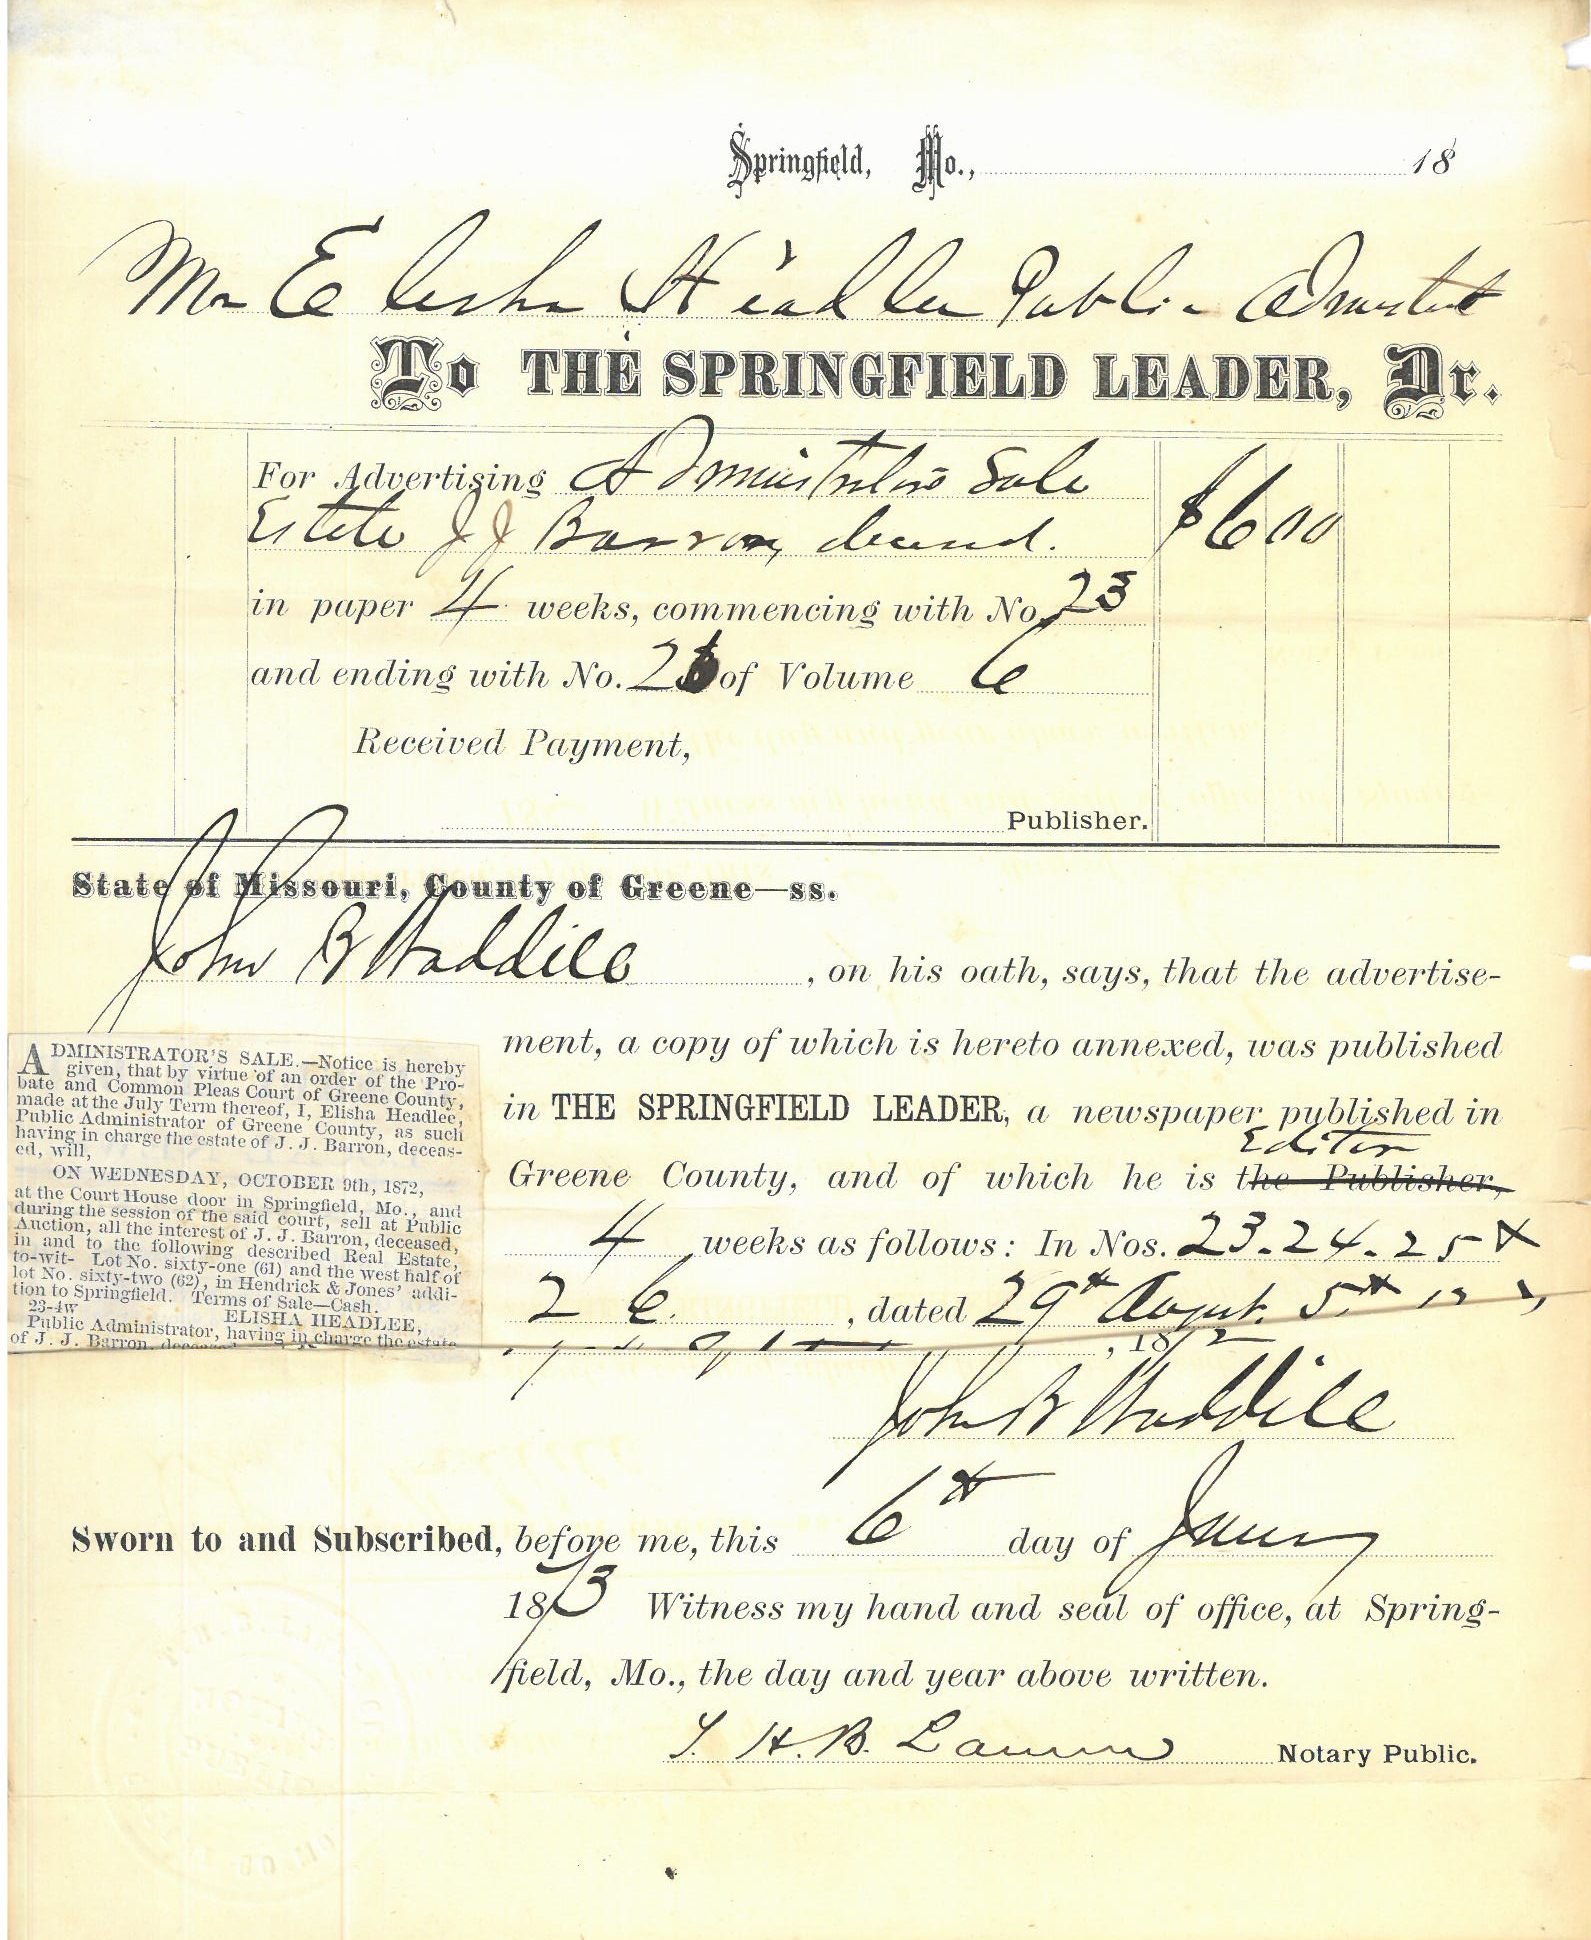 Springfield, Mo., 18
Mr Elisha Headlee Public Admistrt
To THE SPRINGFIELD LEADER, Dr.
For Advertising Administrators Sale
Estate J J Barron, deceased. $6 00
in paper 4 weeks, commencing with No. 23
and ending with No. 26 of Volume 6
Received Payment,
Publisher.
State of Missouri, County of Greene—ss.
John B Waddill , on his oath, says, that the advertise-
ment, a copy of which is hereto annexed, was published
in THE SPRINGFIELD LEADER, a newspaper published in
Editor
Greene County, and of which he is the Publisher,
4 weeks as follows: In Nos. 23. 24. 25 &
26. , dated 29th August. 5th 12
, 1872
ADMINISTRATOR'S SALE.—Notice is hereby
given, that by virtue of an order of the Pro-
bate and Common Pleas Court of Greene County,
made at the July Term thereof, I, Elisha Headlee,
Public Administrator of Greene County, as such
having in charge the estate of J. J. Barron, deceas-
ed, will,
ON WEDNESDAY, OCTOBER 9th, 1872,
at the Court House door in Springfield, Mo., and
during the session of the said court, sell at Public
Auction, all the interest of J. J. Barron, deceased,
in and to the following described Real Estate,
to-wit- Lot No. sixty-one (61) and the west half of
lot No. sixty-two (62), in Hendrick & Jones' addi-
tion to Springfield. Terms of Sale—Cash.
23-4w ELISHA HEADLEE,
Public Administrator, having in charge the estate
of J. J. Barron, deceased
John B Waddill
Sworn to and Subscribed, before me, this 6th day of Jany
1873 Witness my hand and seal of office, at Spring-
field, Mo., the day and year above written.
T. H. B. Lawrence Notary Public.